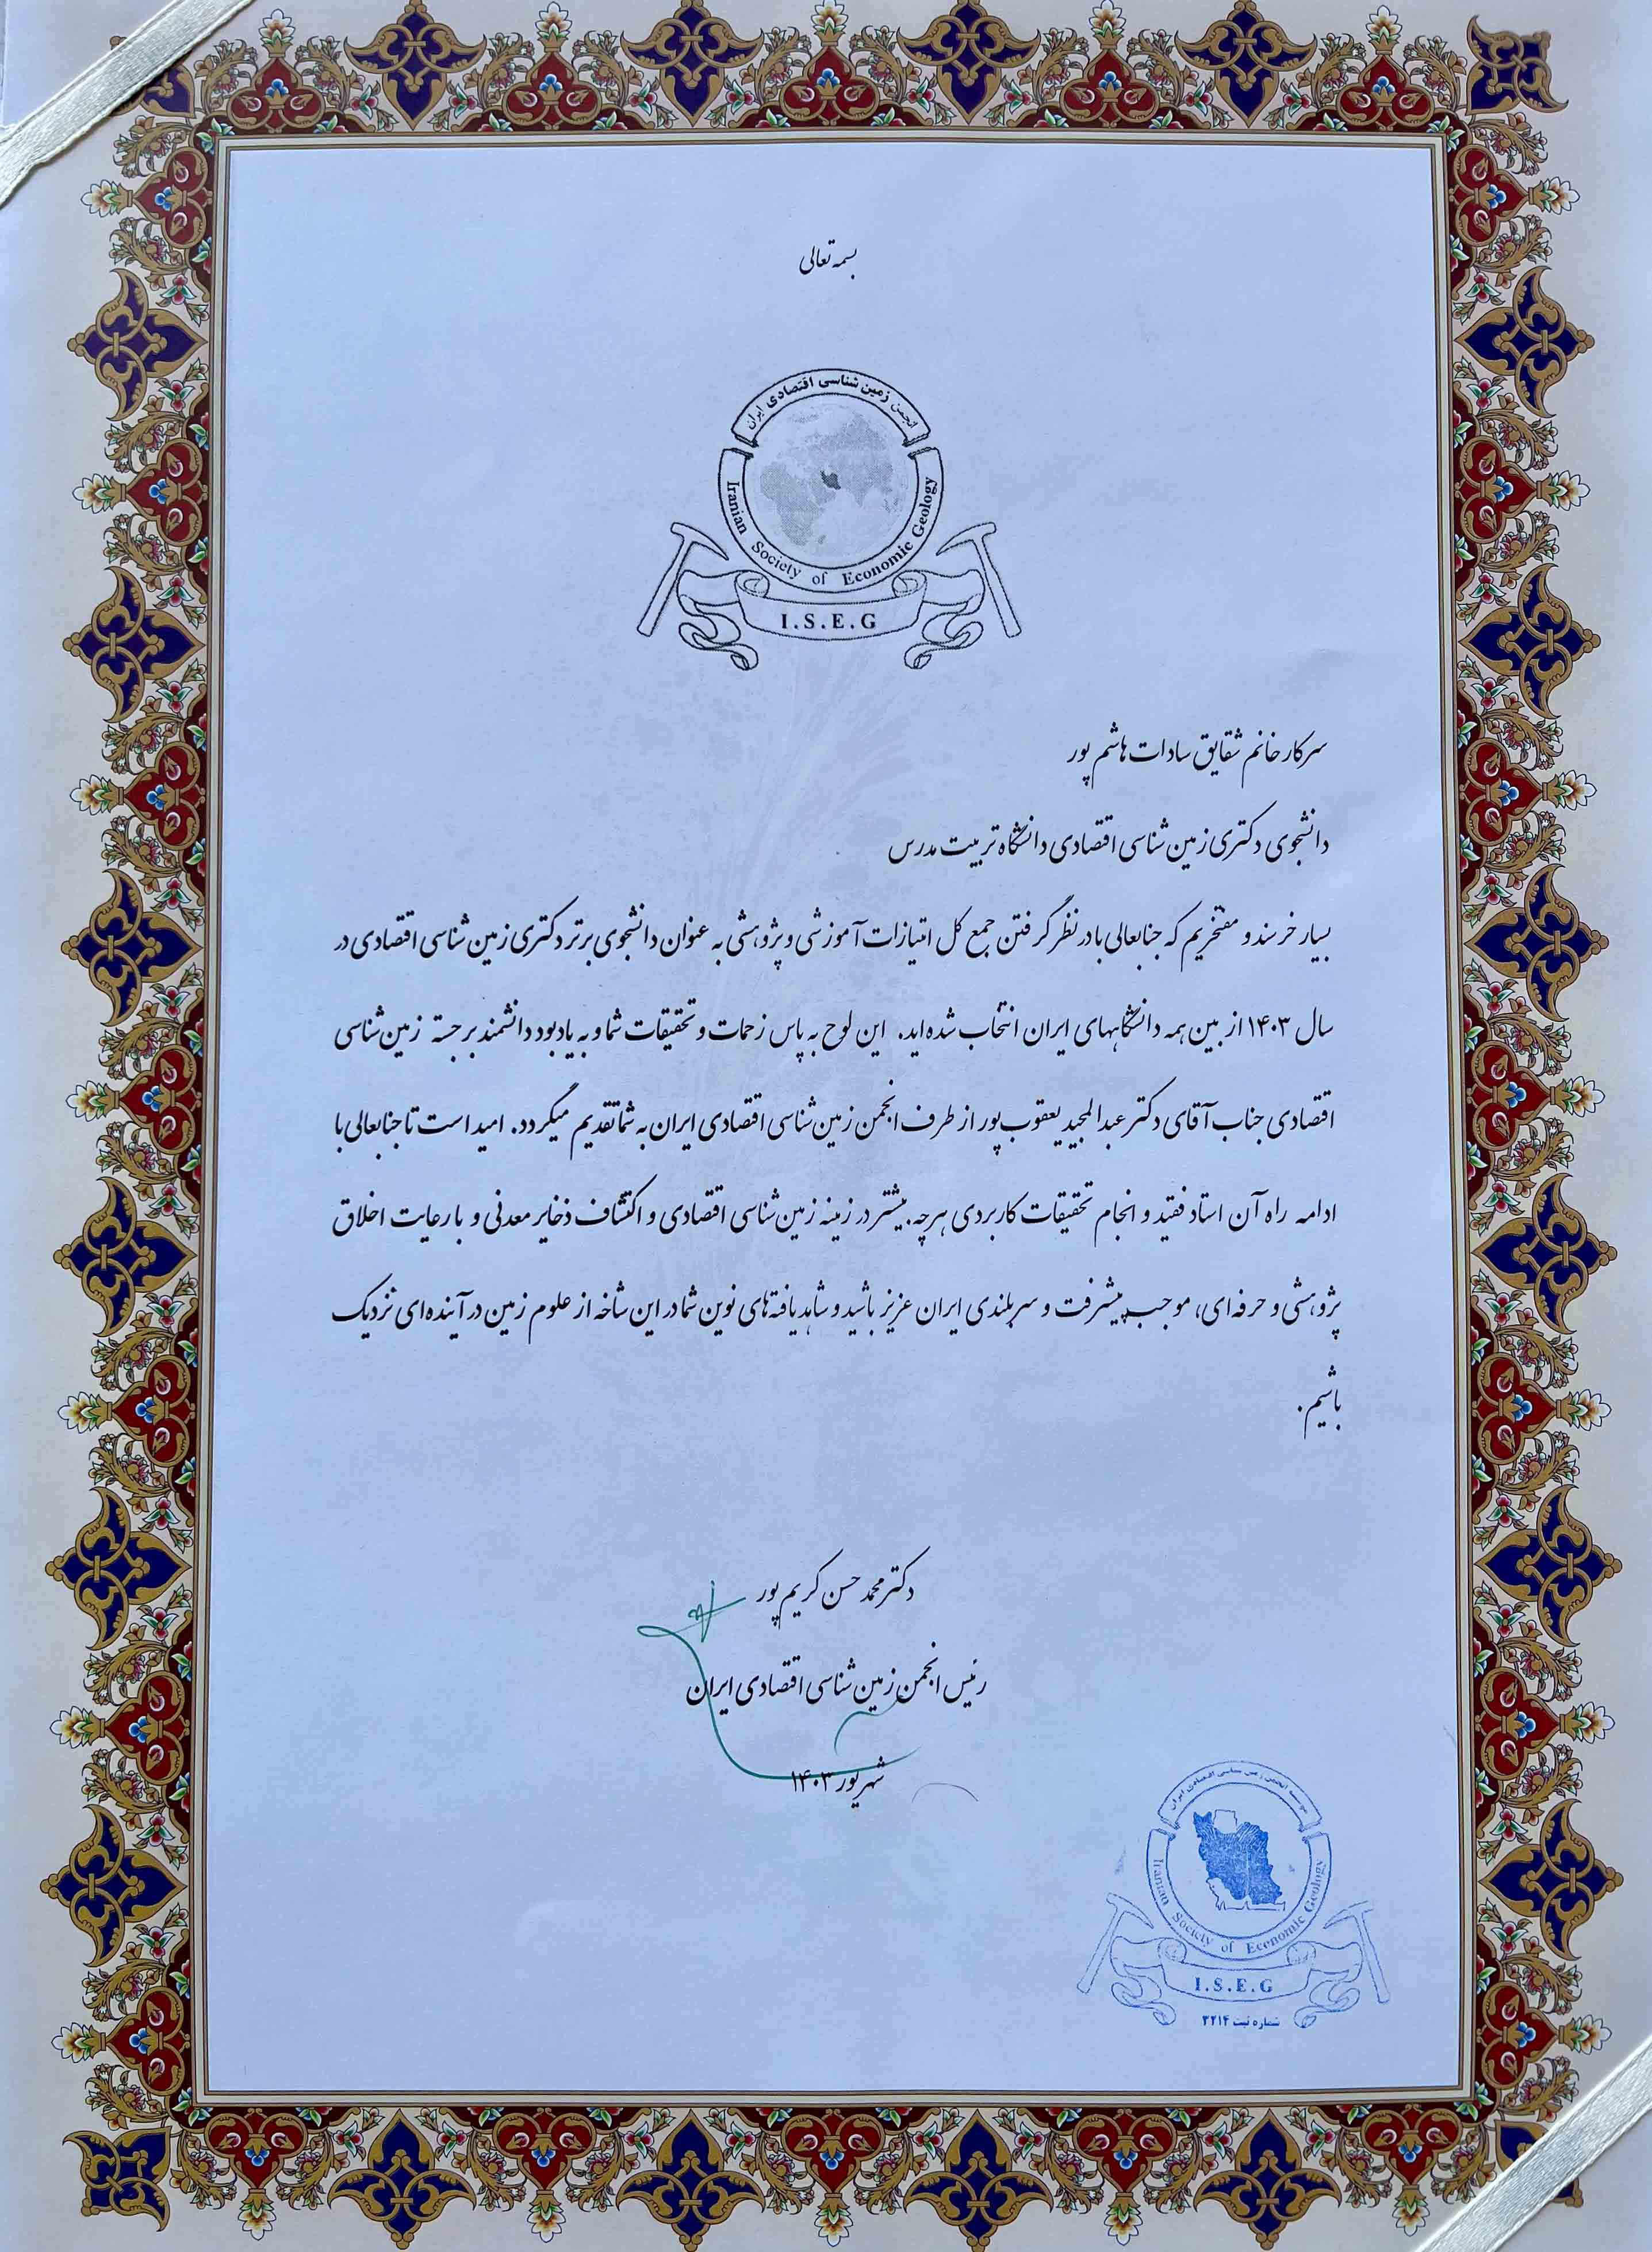 بسمه تعالی
انجمن زمین شناسی اقتصادی ایران
Iranian Society of Economic Geology
I.S.E.G
سرکار خانم شقایق سادات هاشم پور
دانشجوی دکتری زمین شناسی اقتصادی دانشگاه تربیت مدرس
بسیار خرسند و مفتخریم که جنابعالی با در نظر گرفتن جمع کل امتیازات آموزشی و پژوهشی به عنوان دانشجوی برتر دکتری زمین شناسی اقتصادی در
سال ۱۴۰۳ از بین همه دانشگاههای ایران انتخاب شده اید. این لوح به پاس زحمات و تحقیقات شما و به یادبود دانشمند برجسته زمین شناسی
اقتصادی جناب آقای دکتر عبدالمجید یعقوب پور از طرف انجمن زمین شناسی اقتصادی ایران به شما تقدیم میگردد. امید است تا جنابعالی با
ادامه راه آن استاد فقید و انجام تحقیقات کاربردی هرچه بیشتر در زمینه زمین شناسی اقتصادی و اکتشاف ذخایر معدنی و با رعایت اخلاق
پژوهشی و حرفه ای، موجب پیشرفت و سربلندی ایران عزیز باشید و شاهد یافته های نوین شما در این شاخه از علوم زمین در آینده ای نزدیک
باشیم.
دکتر محمد حسن کریم پور
رئیس انجمن زمین شناسی اقتصادی ایران
شهریور ۱۴۰۳
موسسه انجمن زمین شناسی اقتصادی ایران
Iranian Society of Economic Geology
I.S.E.G
شماره ثبت ۳۲۱۴